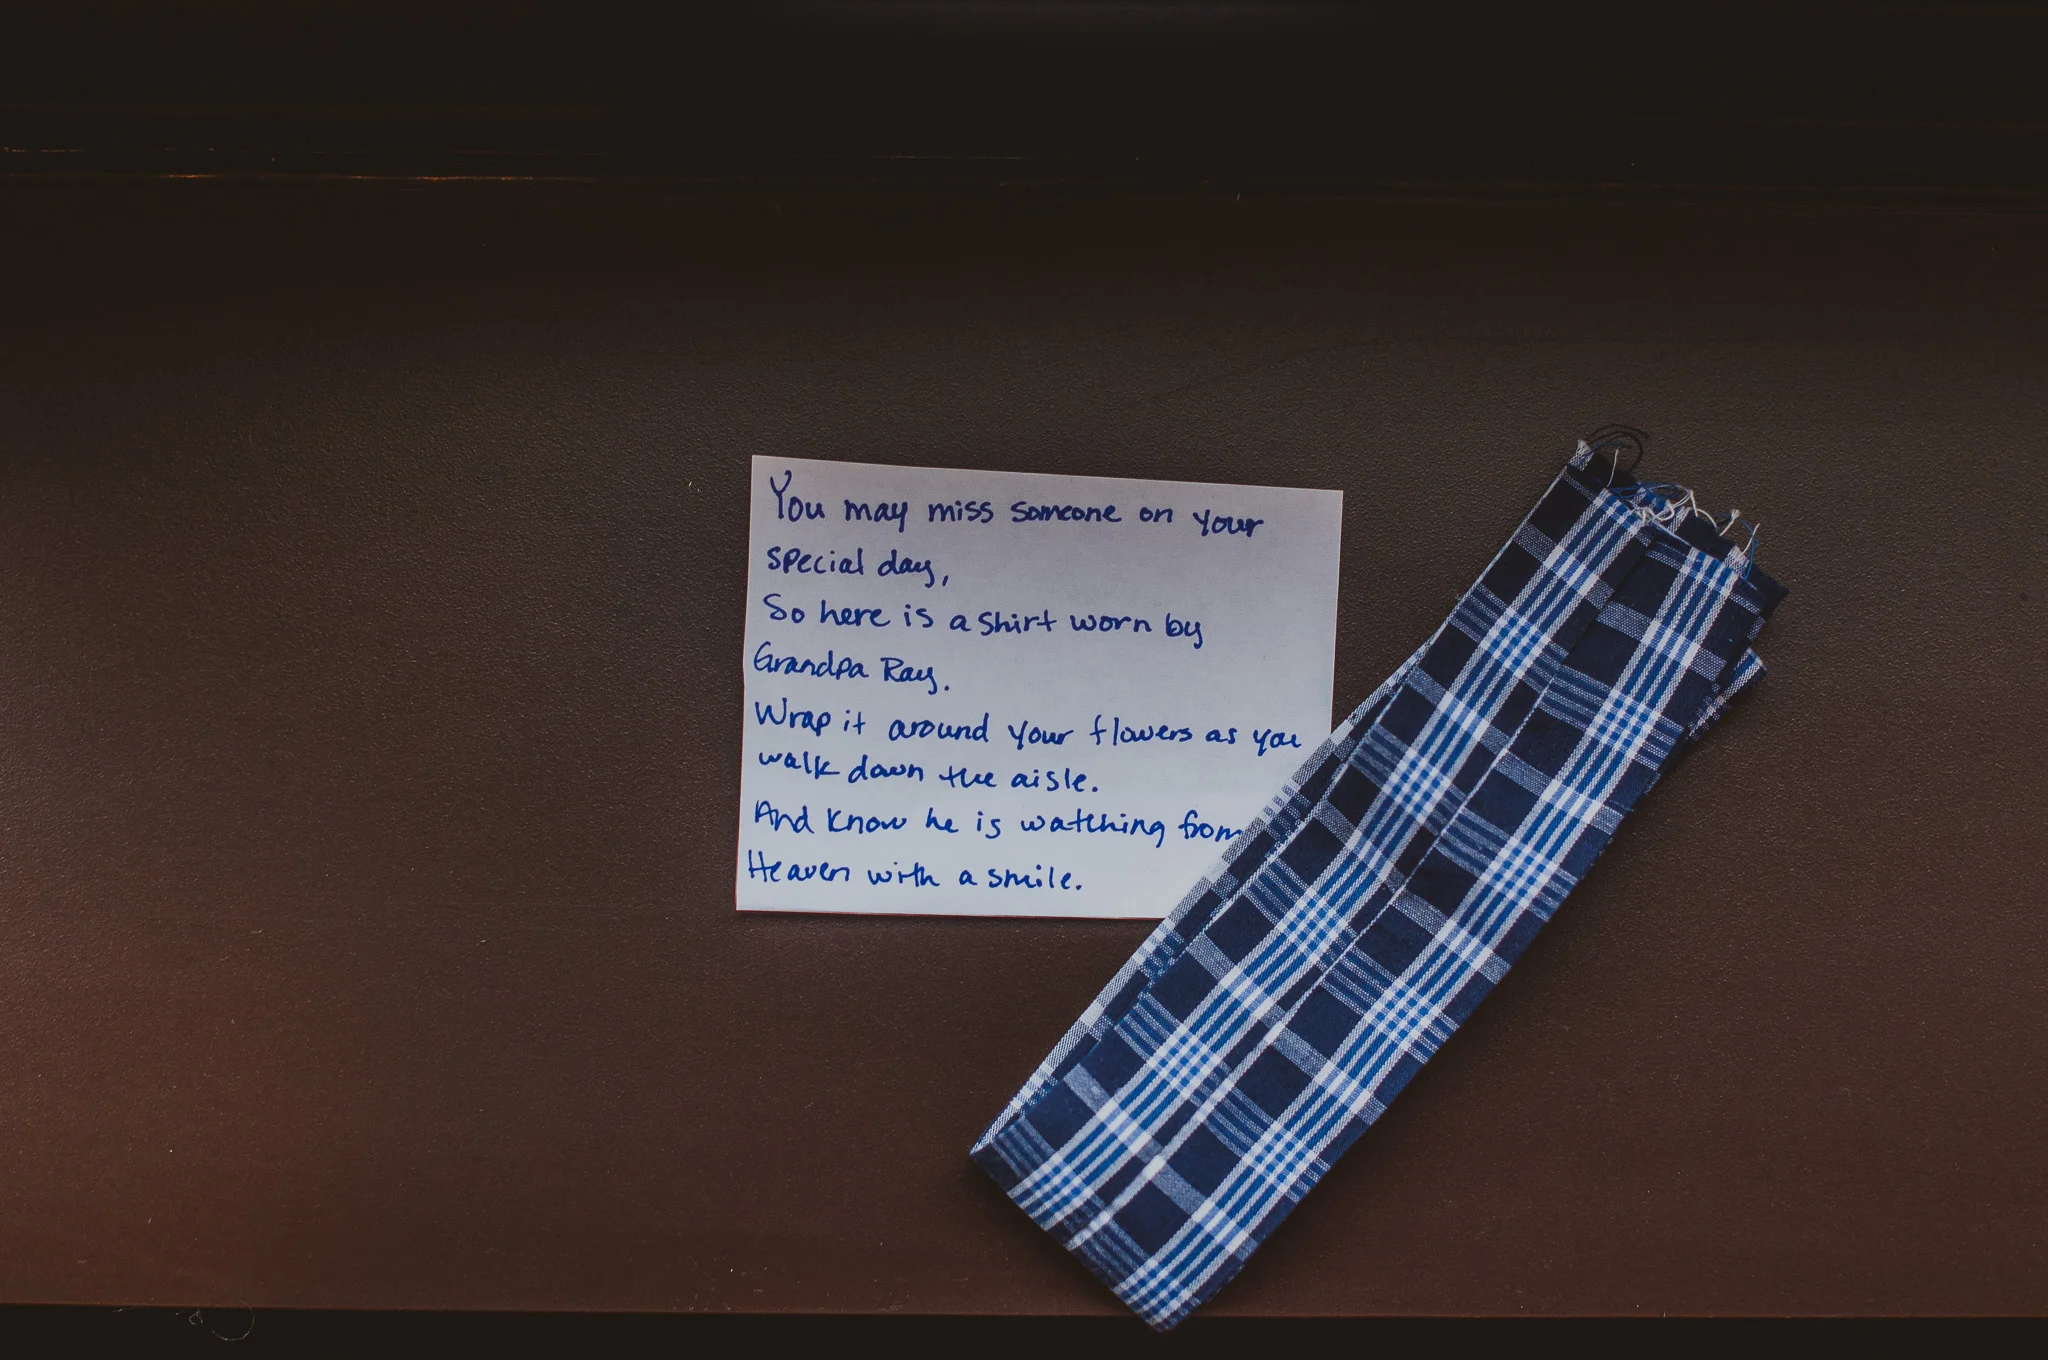 You may miss someone on your
special day,
So here is a shirt worn by
Grandpa Ray.
Wrap it around your flowers as you
walk down the aisle.
And know he is watching from
Heaven with a smile.